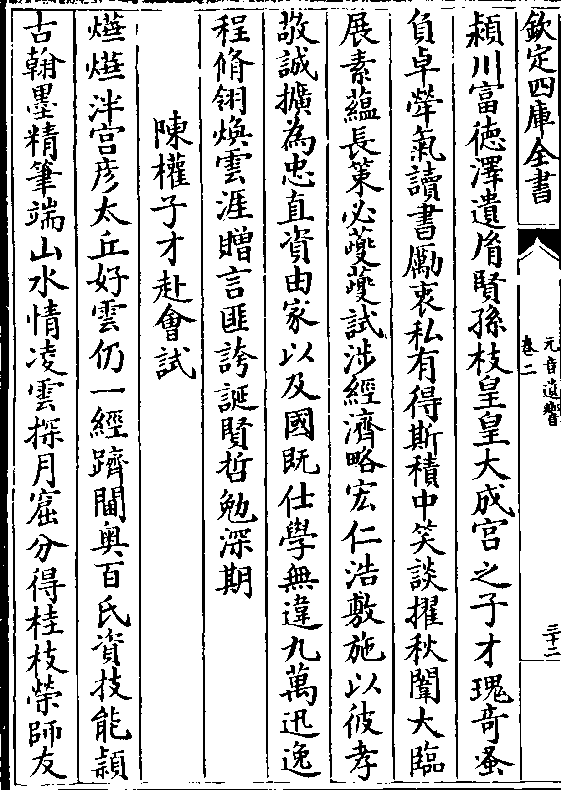 欽定四庫全書
元音遺響
卷二
三十二
潁川富徳澤遺胤賢孫枝皇皇大成宫之子才瑰竒蚤
負卓犖氣讀書勵衷私有得斯積中笑談擢秋闈大臨
展素藴長策必夔夔試涉經濟略宏仁浩敷施以彼孝
敬誠擴為忠直資由家以及國既仕學無違九萬迅逸
程脩翎煥雲涯贈言匪誇誕賢哲勉深期
陳權子才赴㑹試
爗爗泮宫彦太丘好雲仍一經躋閫奥百氏資技能潁
古翰墨精筆端山水情凌雲探月窟分得桂枝榮師友